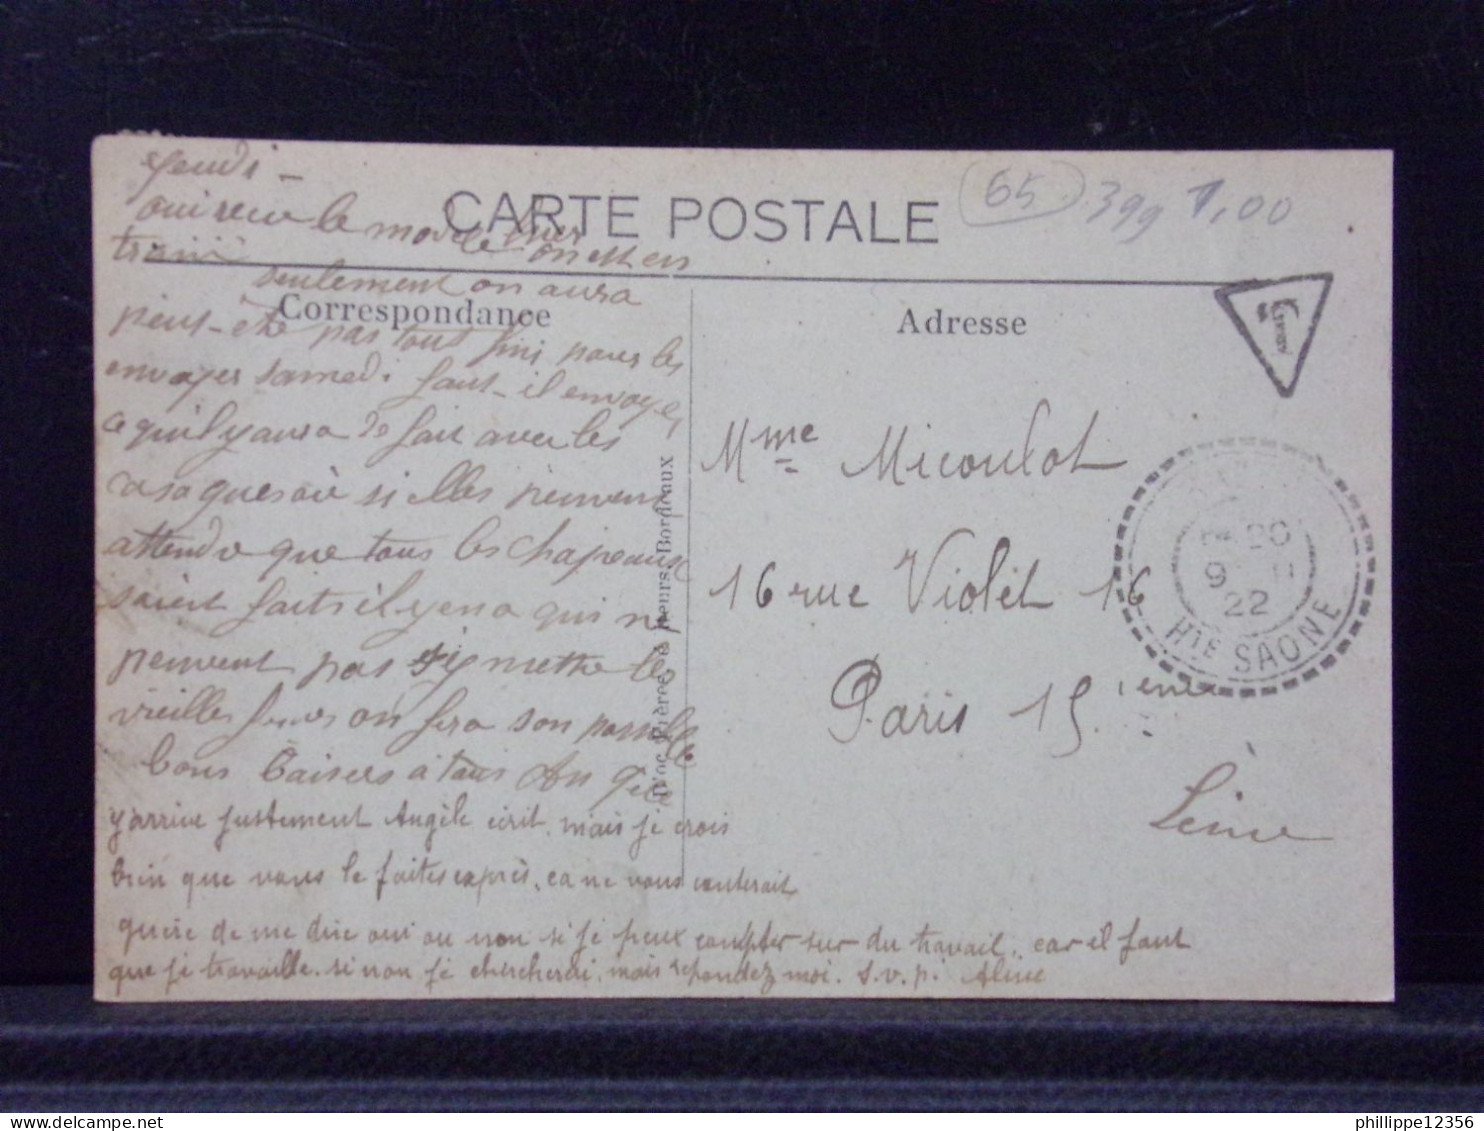 Jeudi -
CARTE POSTALE
65 399 1,00
oui reçu le modèle hier on est en
train seulement on aura
Correspondance
Adresse
peut-être pas tous fini pour les
envoyer samedi faut-il envoyer
ce qu'il y aura de fait avec les
casaques où si elles peuvent
attendre que tous les chapeaux
soient faits il y en a qui ne
peuvent pas s'y mettre les
vieilles on fera son possible
bons baisers à tous Angèle
j'arrive justement Angèle écrit, mais je crois
bien que vous le faites exprès, ca ne vous couterait
guère de me dire oui ou non si je peux compter sur du travail, car il faut
que je travaille. si non je chercherai, mais repondez moi. S.v.p. Aline
T
Mme Micoulot
16 rue Violet 16
Paris 15 ième
Seine
20
9
22
Hte SAONE
Frères Bordeaux
phillippe12356